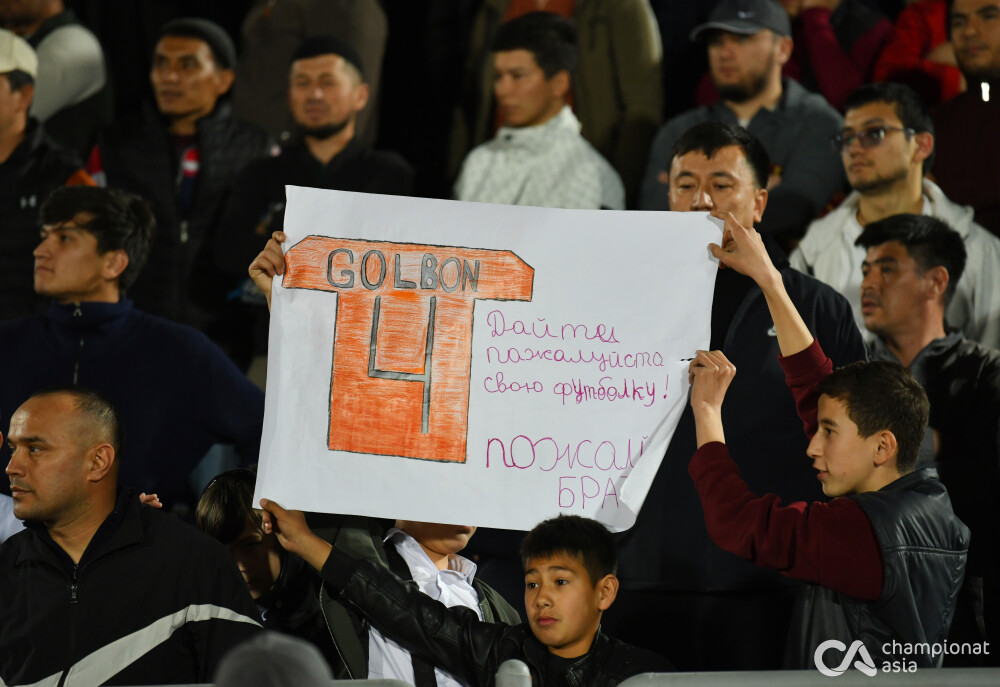 GOLBON
4
Дайте
пожалуйста
свою футболку!
ПОЖАЛ
БРА
CA championat
asia